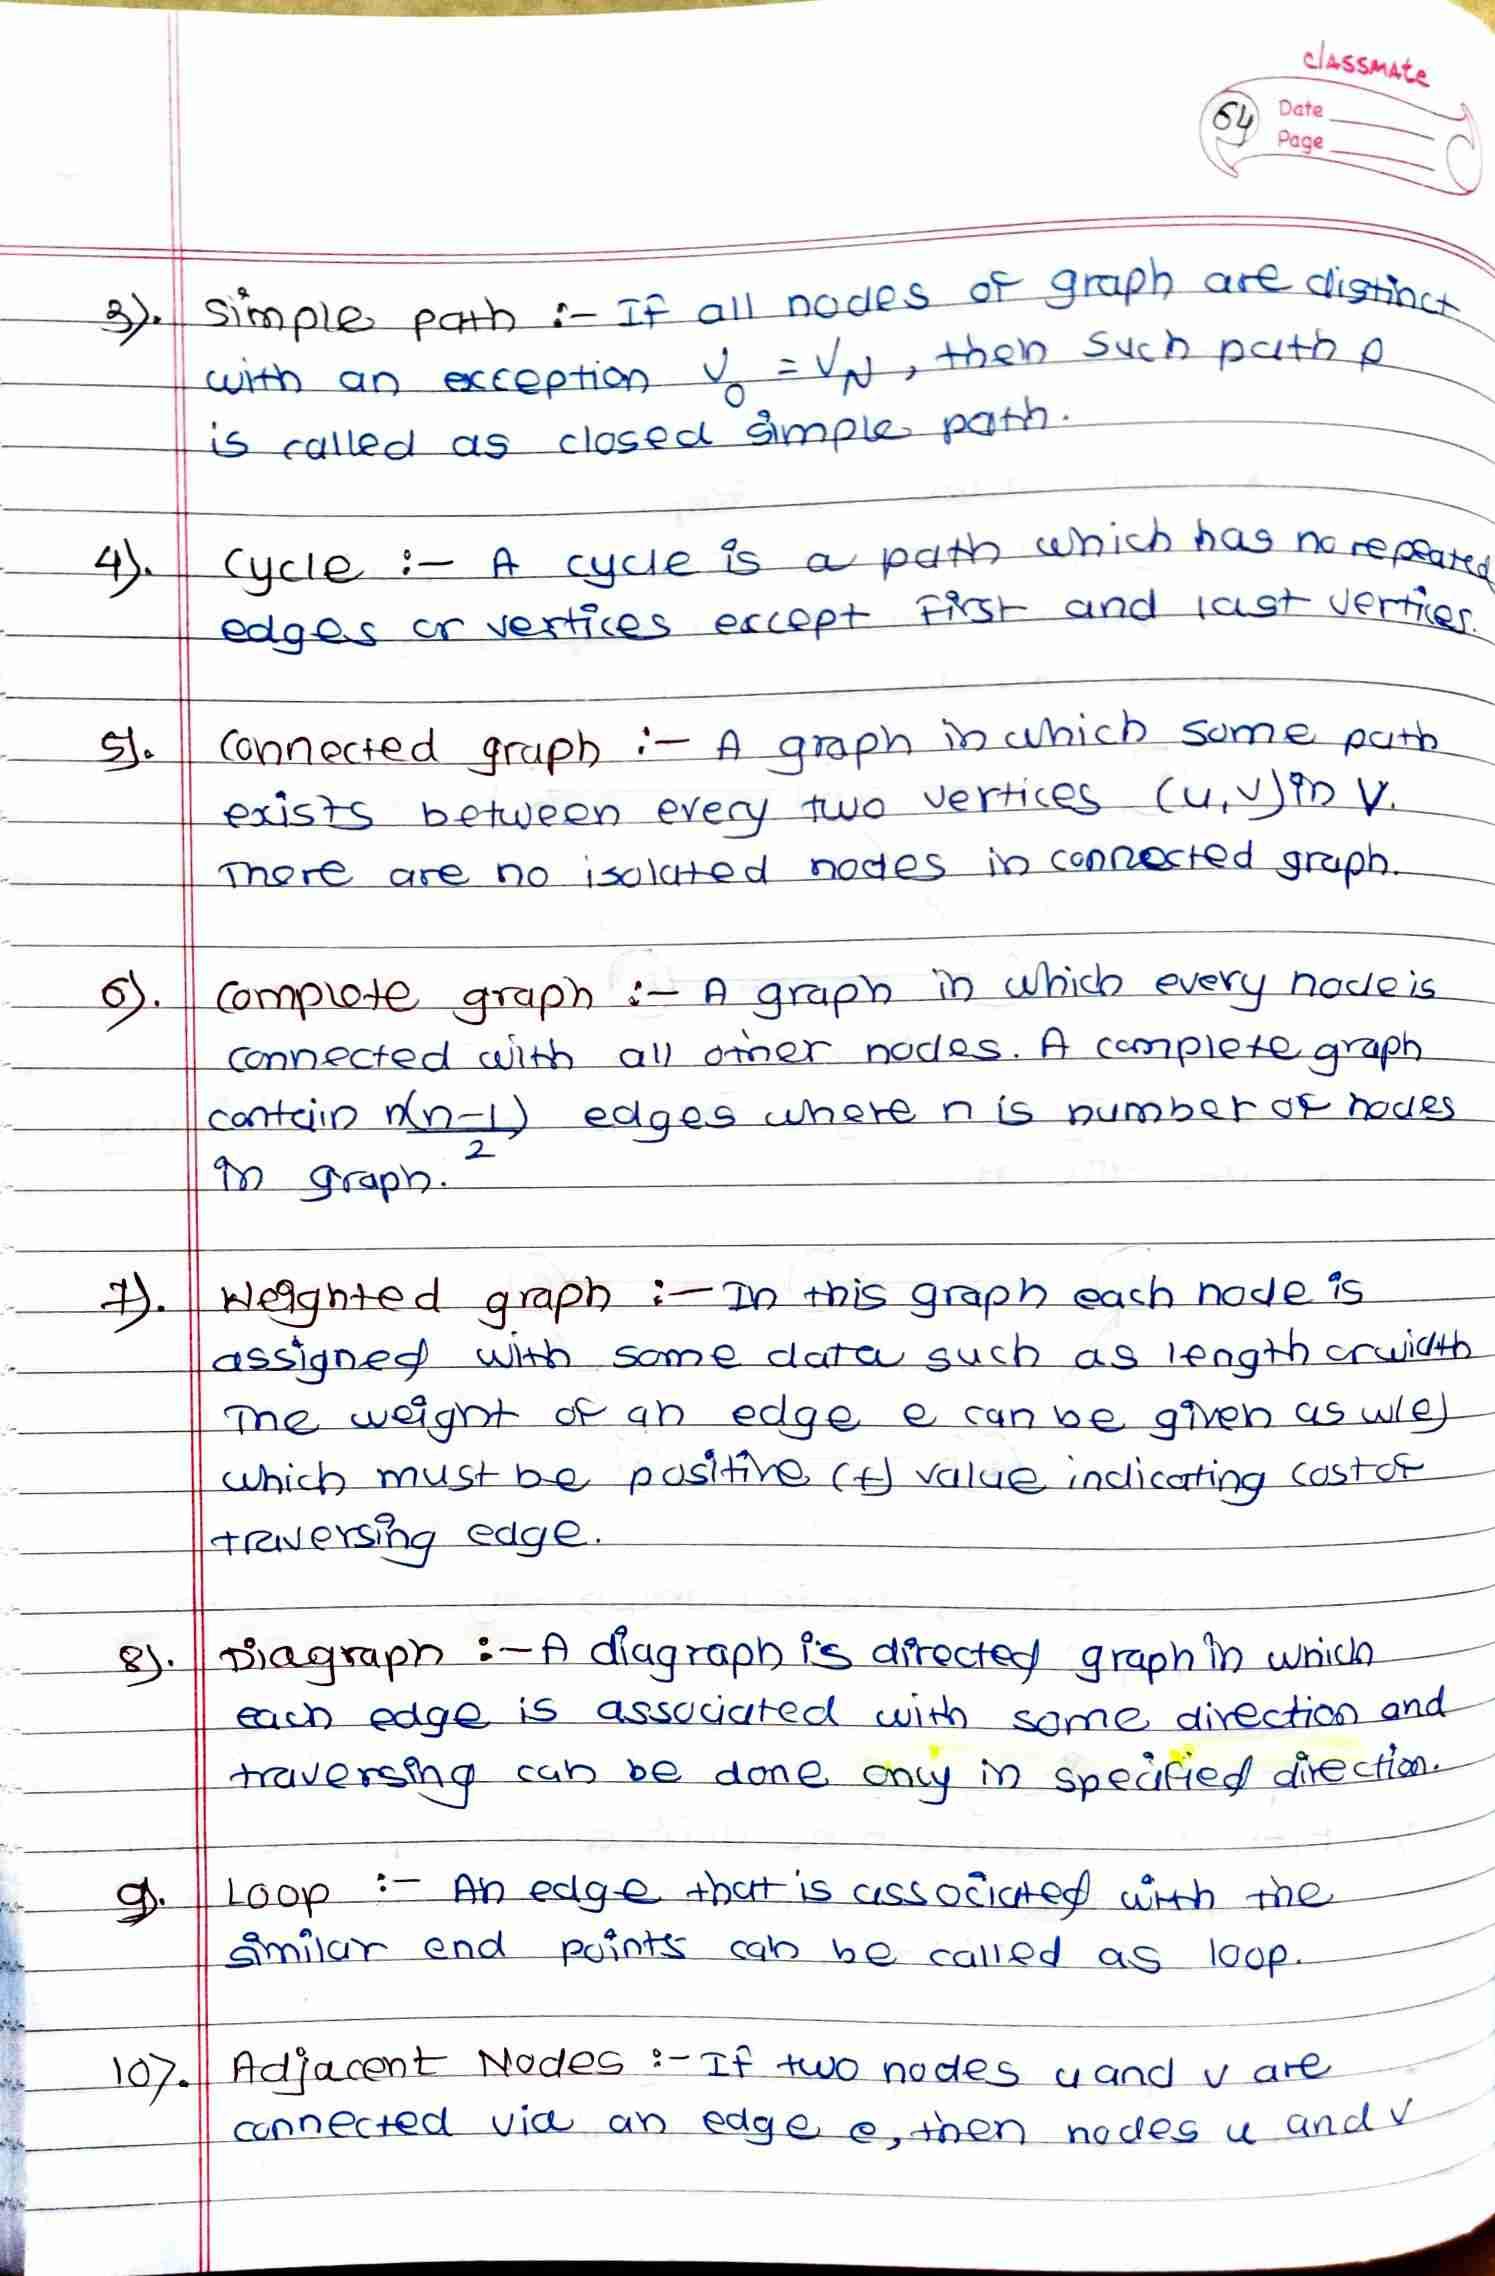 classmate
64
Date
Page
3). Simple path :- If all nodes of graph are distinct
with an exception V0 = VN, then such path P
is called as closed simple path.
4). Cycle :- A cycle is a path which has no repeated
edges or vertices except first and last vertices.
5). Connected graph :- A graph in which some path
exists between every two vertices (u,v) in V.
There are no isolated nodes in connected graph.
6). Complete graph :- A graph in which every node is
connected with all other nodes. A complete graph
contain n(n-1)/2 edges where n is number of nodes
in graph.
7). Weighted graph :- In this graph each node is
assigned with some data such as length or width
The weight of an edge e can be given as w(e)
which must be positive (+) value indicating cost of
traversing edge.
8). Diagraph :- A diagraph is directed graph in which
each edge is associated with some direction and
traversing can be done only in specified direction.
9). Loop :- An edge that is associated with the
similar end points can be called as loop.
10). Adjacent Nodes :- If two nodes u and v are
connected via an edge e, then nodes u and v